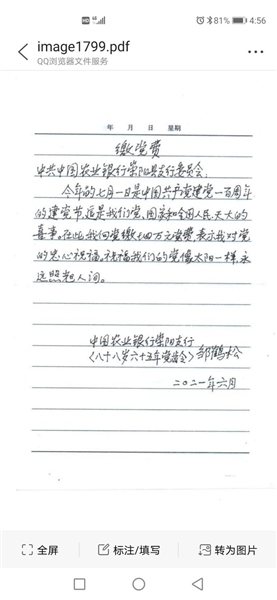 81% 4:56
image1799.pdf
QQ浏览器文件服务
年 月 日 星期
缴党费
中共中国农业银行荥阳县支行委员会:
今年的七月一日是中国共产党建党一百周年
的建党节,这是我们党、国家和全国人民天大的
喜事。在此我向党缴 万元党费,表示我对党
的忠心祝福。祝福我们的党像太阳一样,永
远照耀人间。
中国农业银行荥阳支行
(八十八岁六十五年党龄) 邹鹤松
二〇二一年六月
全屏 标注/填写 转为图片